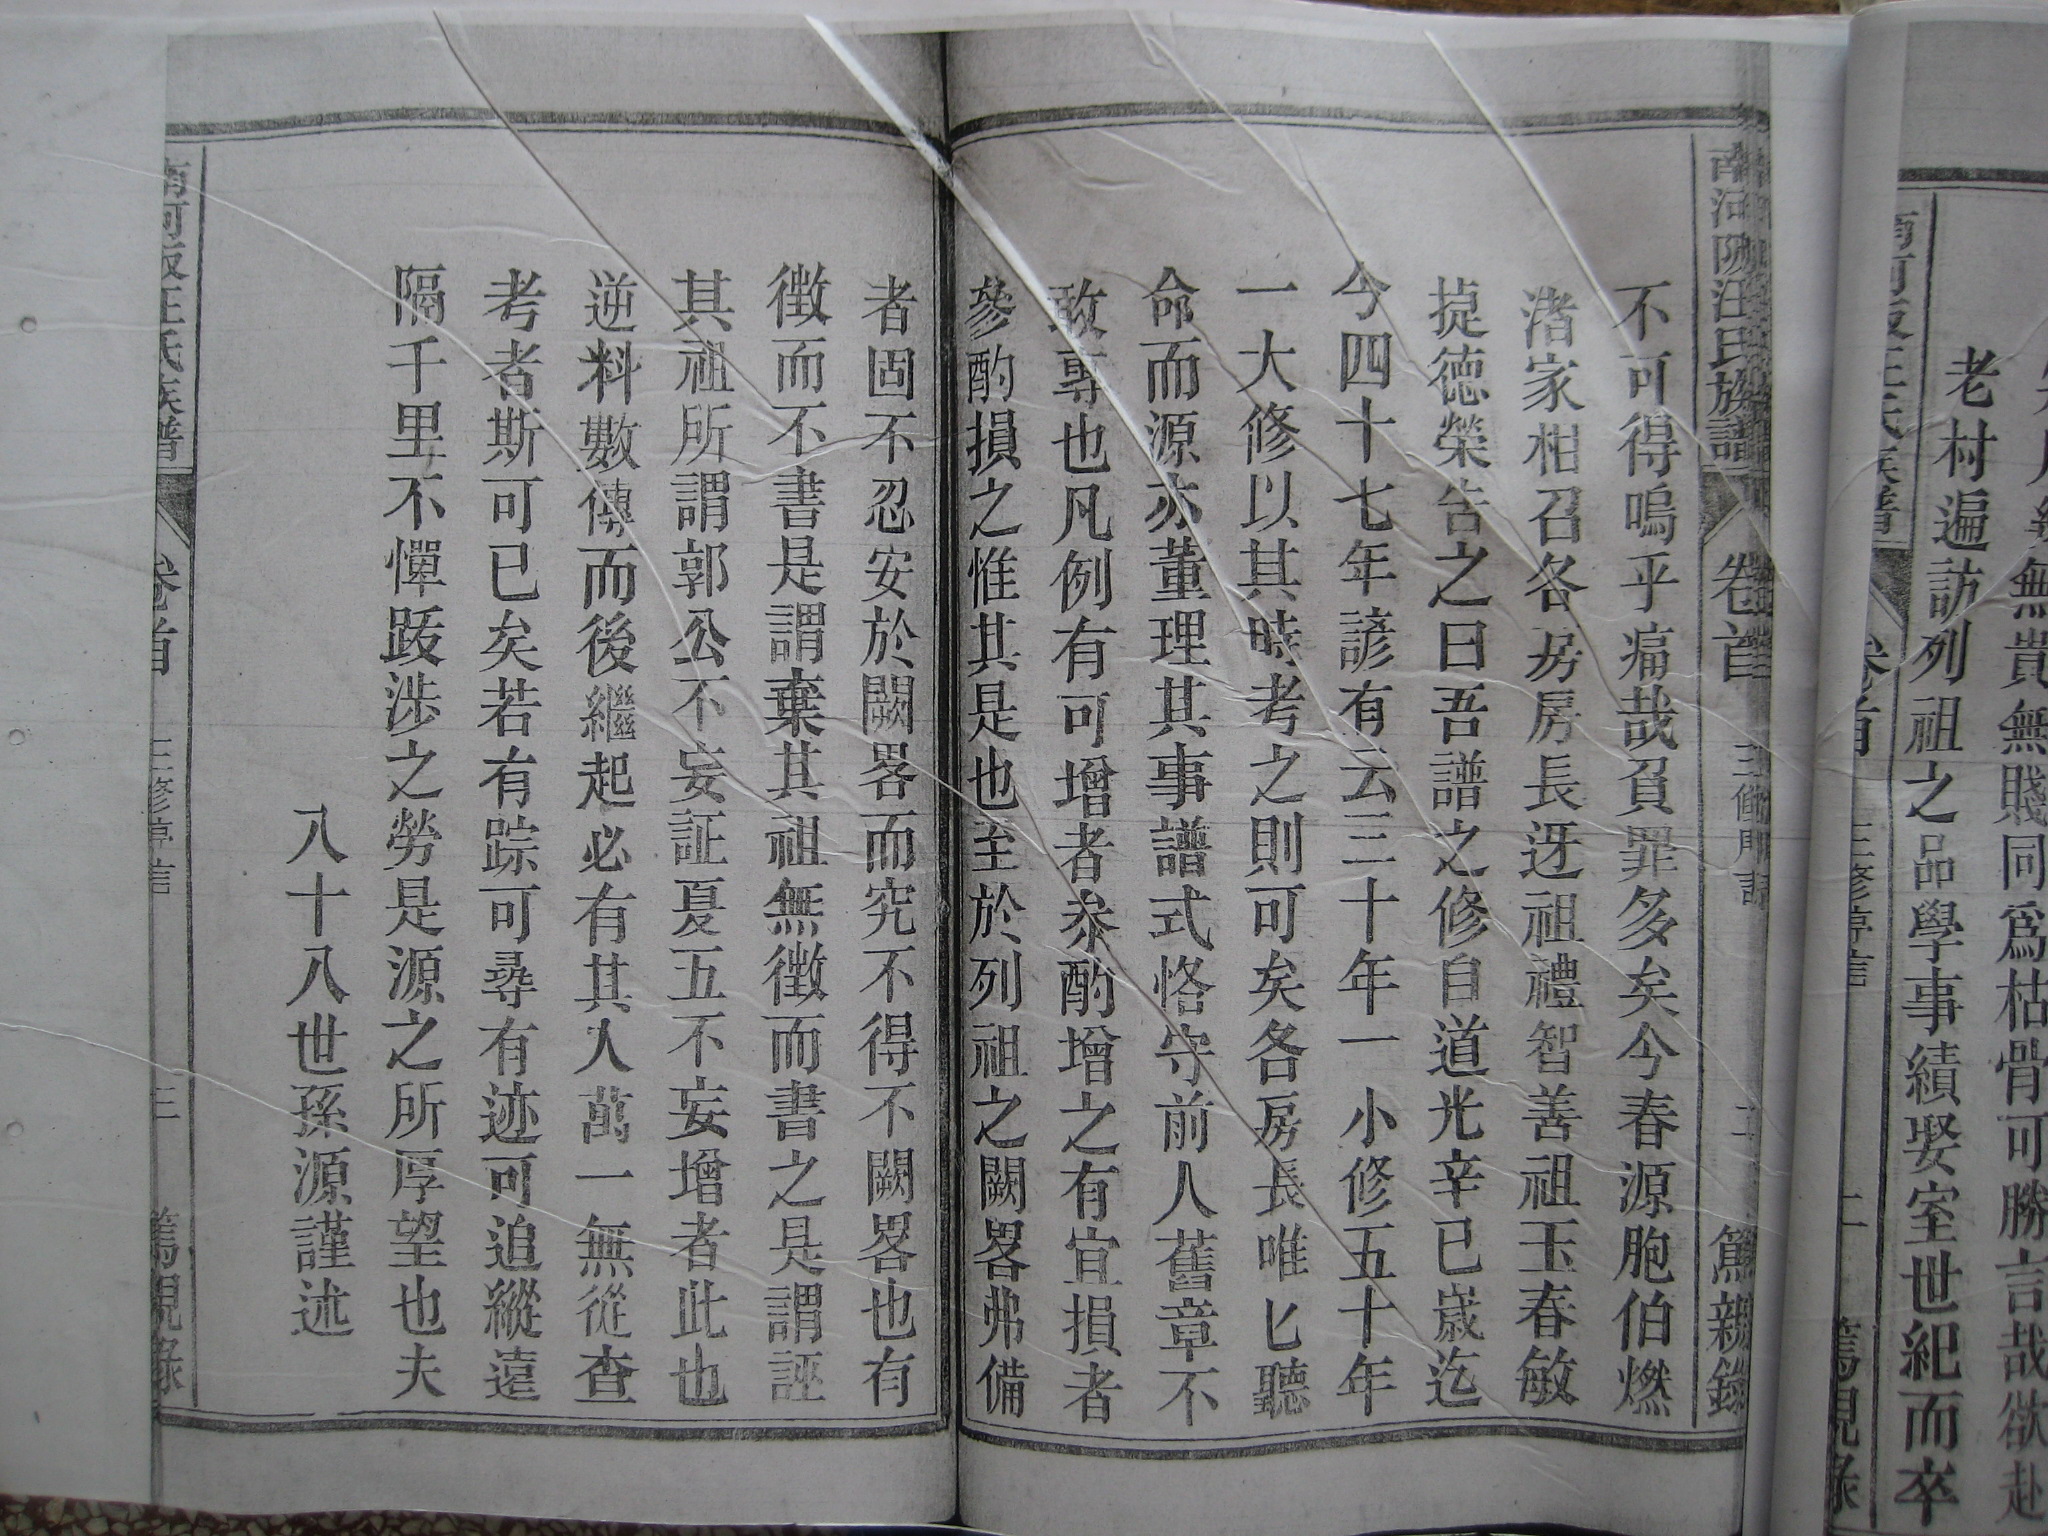 無貴無賤同爲枯骨可勝言哉欲赴
老村遍訪列祖之品學事績娶室世紀而卒
南河陂汪氏族譜 卷首 二 篤親錄
不可得嗚乎痛哉負罪多矣今春源胞伯燃
渚家柑召各房房長迓祖禮智善祖玉春敏
㨗德榮告之曰吾譜之修自道光辛巳歲迄
今四十七年諺有云三十年一小修五十年
一大修以其時考之則可矣各房長唯匕聽
命而源亦董理其事譜式恪守前人舊章不
敢專也凡例有可增者叅酌增之有宜損者
參酌損之惟其是也至於列祖之闕畧弗備
者固不忍安於闕畧而究不得不闕畧也有
徵而不書是謂棄其祖無徵而書之是謂誣
其祖所謂郭公不妄証夏五不妄增者此也
逆料數傳而後繼起必有其人萬一無從查
考者斯可已矣若有踪可尋有迹可追縱遠
隔千里不憚跋涉之勞是源之所厚望也夫
八十八世孫源謹述
卷首 三